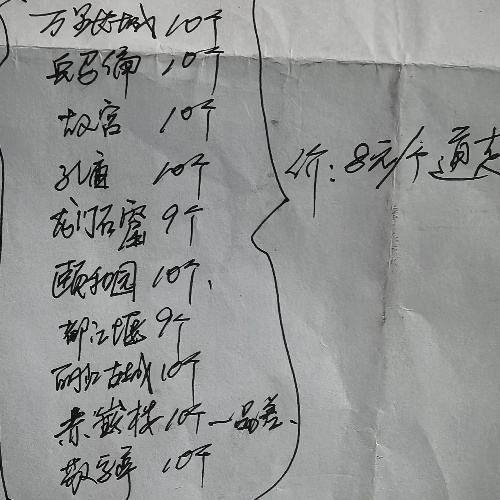 万里长城 10个
兵马俑 10个
故宫 10个
孔庙 10个
龙门石窟 9个
颐和园 10个
价:8元/个
都江堰 9个
丽江古城 10个
10个 一品
10个